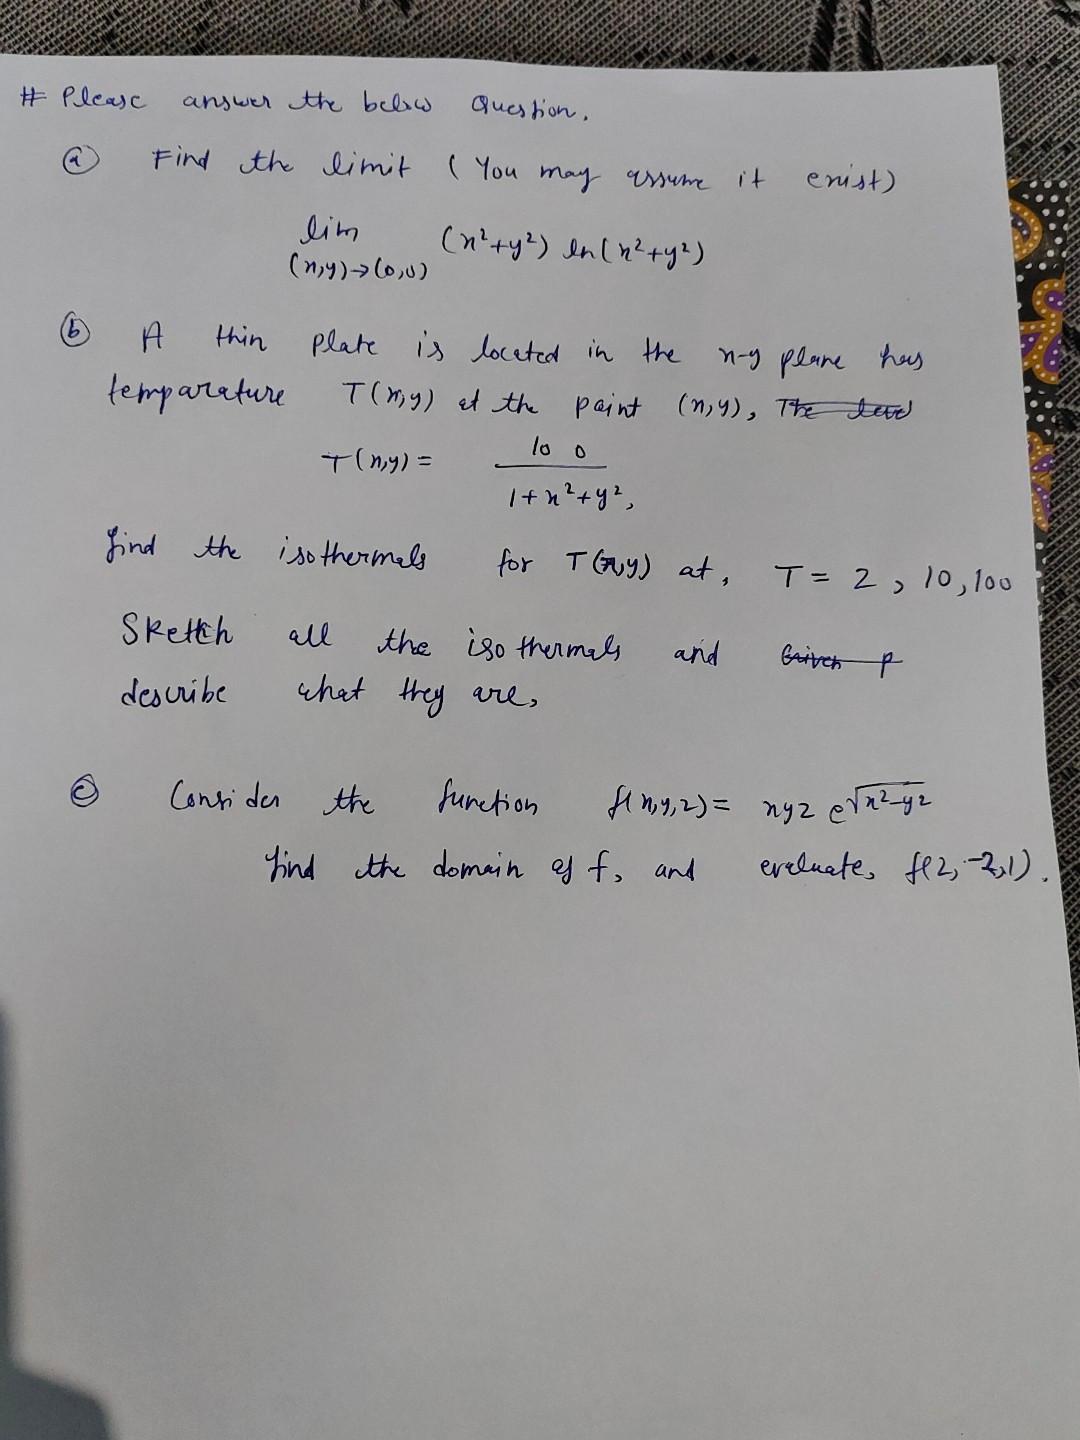 # Please answer the below Question.
(a) Find the limit ( You may assume it exist)
lim (x,y)→(0,0) (x²+y²) ln(x²+y²)
(b) A thin plate is located in the x-y plane has
temparature T(x,y) at the point (x,y), The
T(x,y) = 10 0 / 1+x²+y²,
find the isothermals for T(x,y) at, T = 2, 10, 100
Sketch all the isothermals and Given p
describe what they are,
(c) Consider the function f(x,y,z) = xyz e^√x²-y²
find the domain of f, and evaluate, f(2,-2,1).